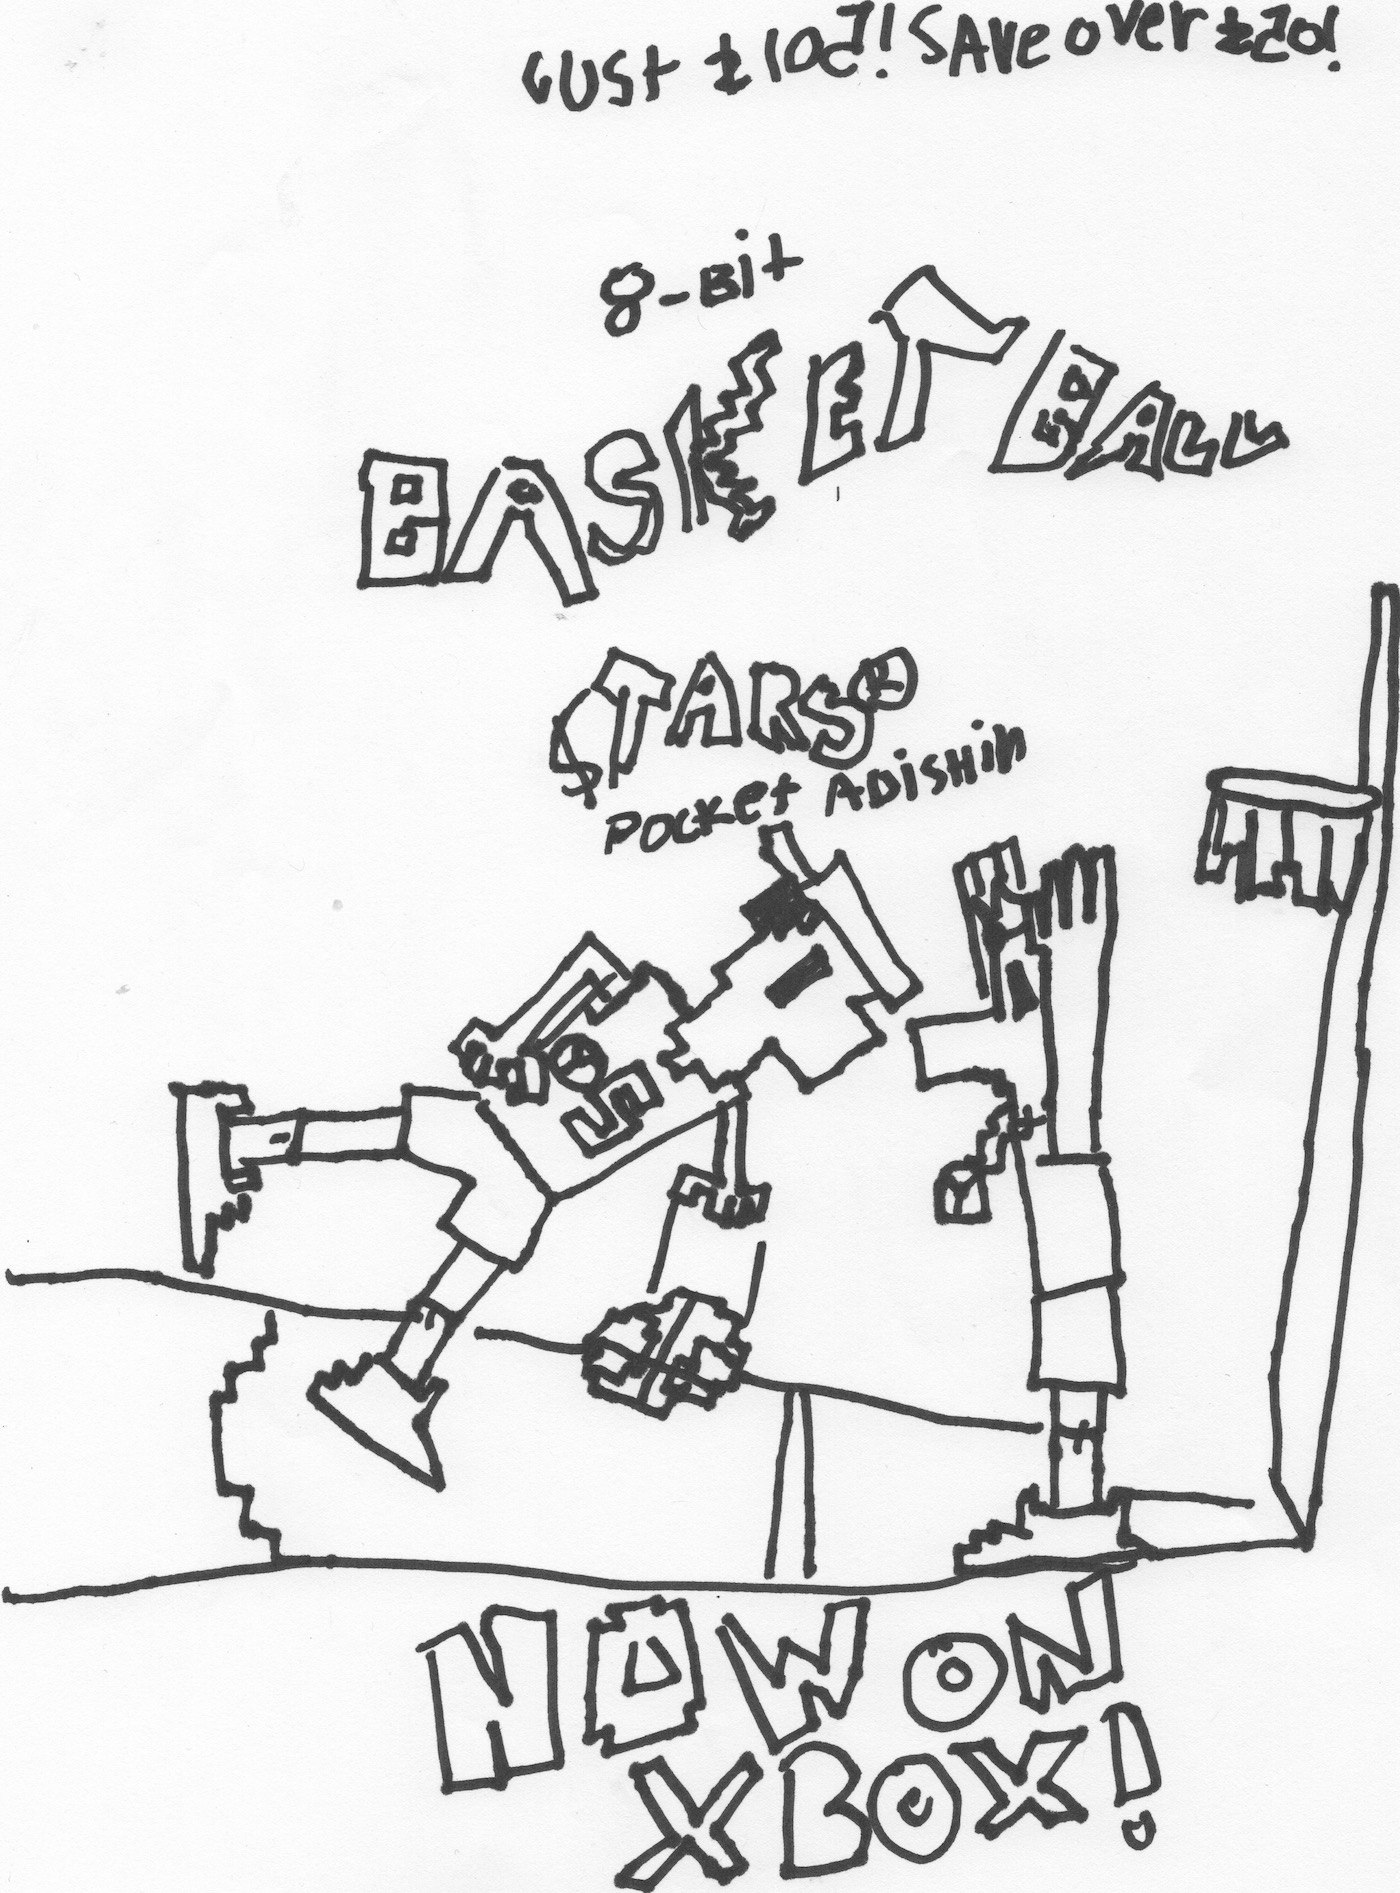 JUST £105! SAVe over £20!
8-Bit
BASKETBALL
$TARS®
Pocket ADiSHin
NOW ON
XBOX!